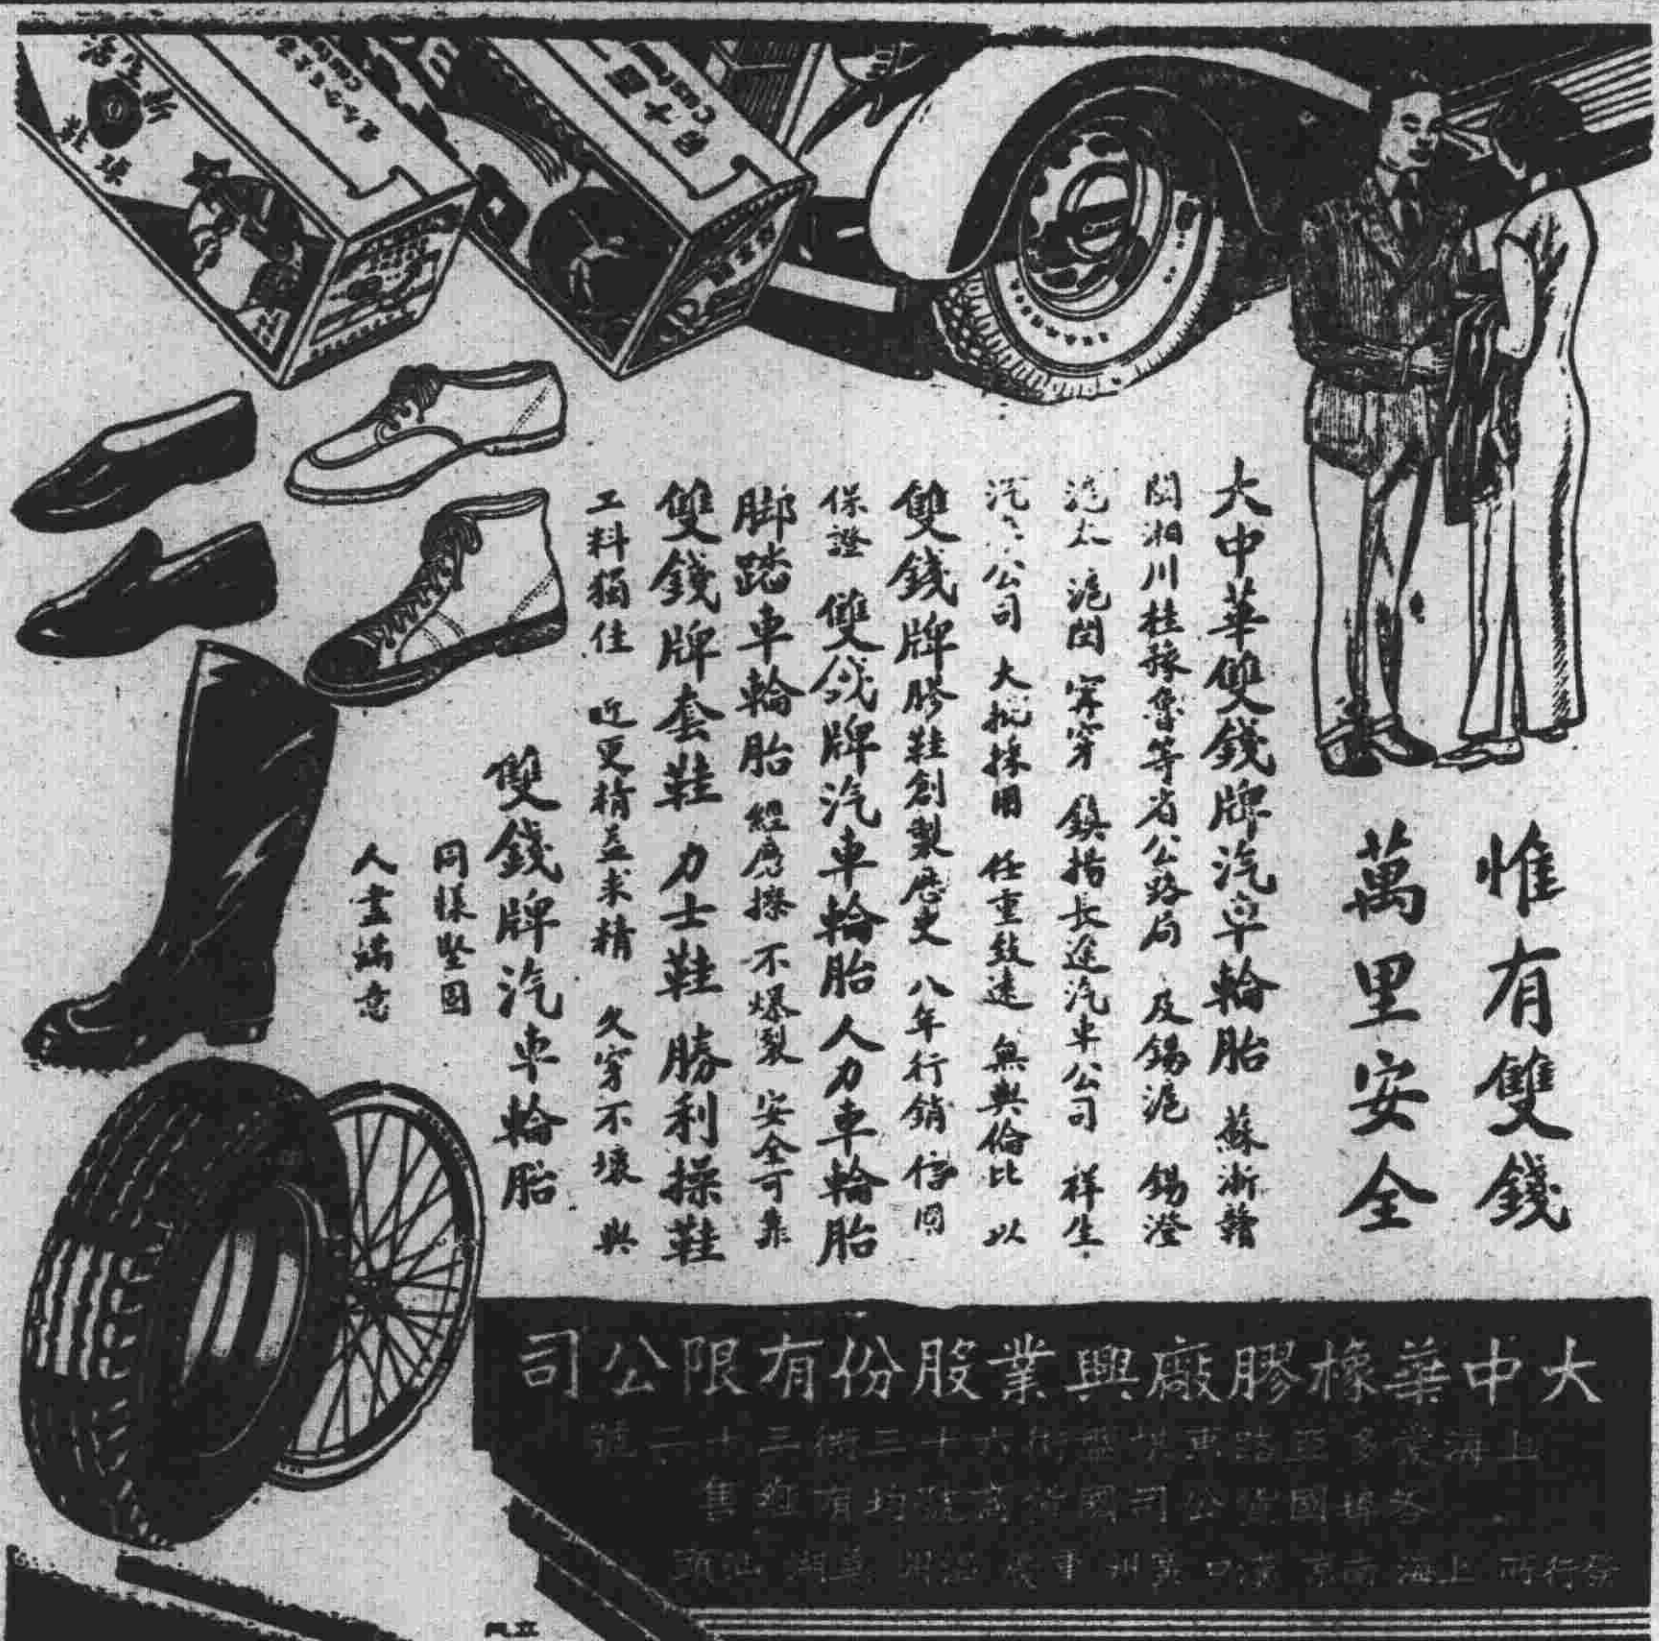 惟有雙錢
萬里安全
大中華雙錢牌汽車輪胎 蘇浙贛
閩湘川桂豫魯等省公路局 及錫滬 錫澄
滬太 滬閔 鎮揚長途汽車公司 祥生
汽車公司 大批採用 任重致遠 無與倫比 以
雙錢牌膠鞋創製歷史 八年行銷 信用
保證 雙錢牌汽車輪胎 人力車輪胎
脚踏車輪胎 經磨擦 不爆裂 安全可靠
雙錢牌套鞋 力士鞋 勝利操鞋
工料獨佳 近更精益求精 久穿不壞 與
雙錢牌汽車輪胎
同樣堅固
人盡滿意
大中華橡膠廠興業股份有限公司
上海愛多亞路東
各埠國貨公司 均有經售
發行所 上海 南京 漢口 廣州 重慶 蕪湖 汕頭